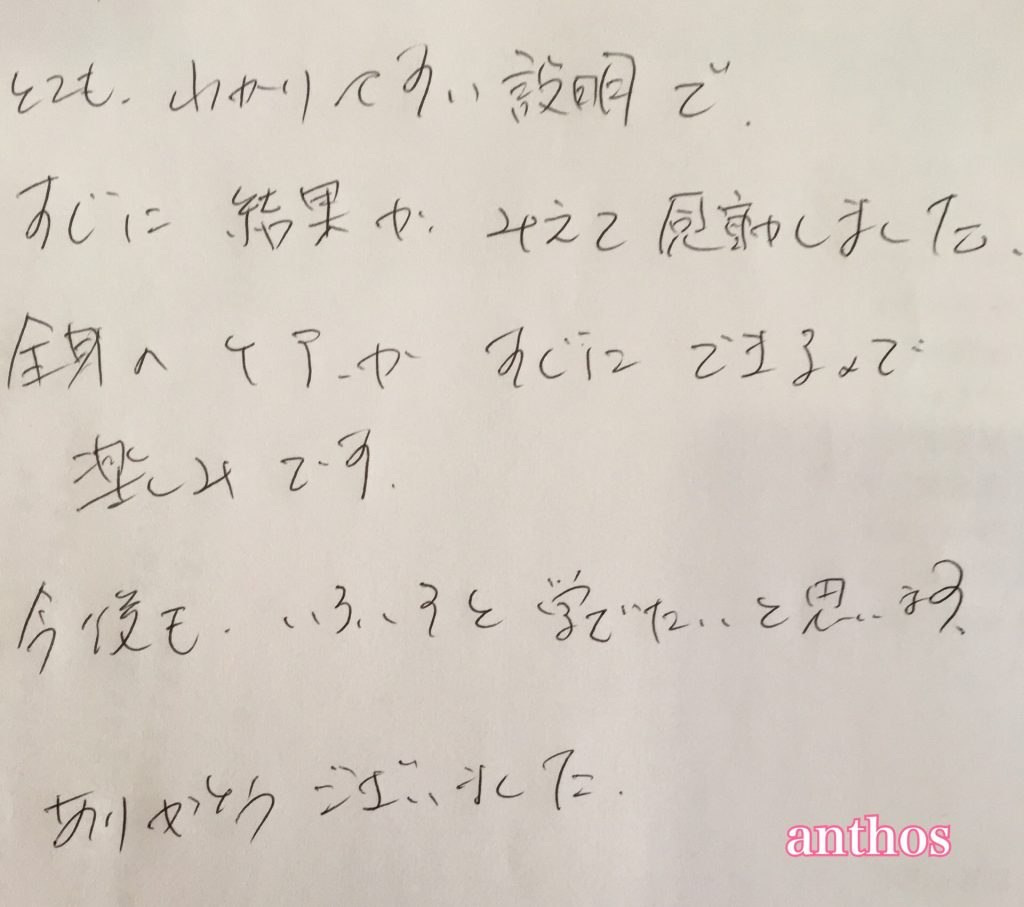 とても、わかりやすい説明で、
すぐに結果がみえて感動しました。
全身へケアーがすぐにできるので
楽しみです。
今後も、いろいろと学んでいきたいと思います。
ありがとうございました。
anthos